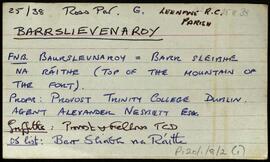 25/38 Ross Par. G. LEENANE R.C. 25 & 38
PARISH
BARRSLIEVENAROY
FNB. BAURSLEUNAROY = BARR SLEIBHE
NA RÁITHE (TOP OF THE MOUNTAIN OF
THE FORT).
PROPR: PROVOST TRINITY COLLEGE DUBLIN.
AGENT ALEXANDER NESBITT ESQ.
Griffiths: Provost & Fellows TCD
OS list: Barr Sléibhe na Ráithe
P120/1/8/2 (1)